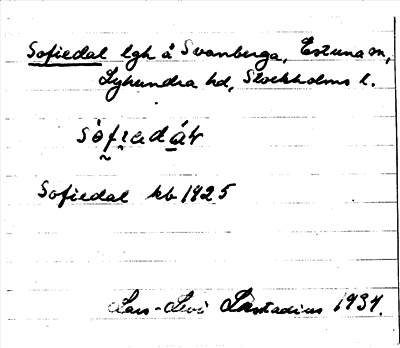 Sofiedal lgh å Svanberga, Estuna sn,
Lyhundra hd, Stockholms l.
sòfiedát
Sofiedal kb 1825
Lars-Levi Læstadius 1934.